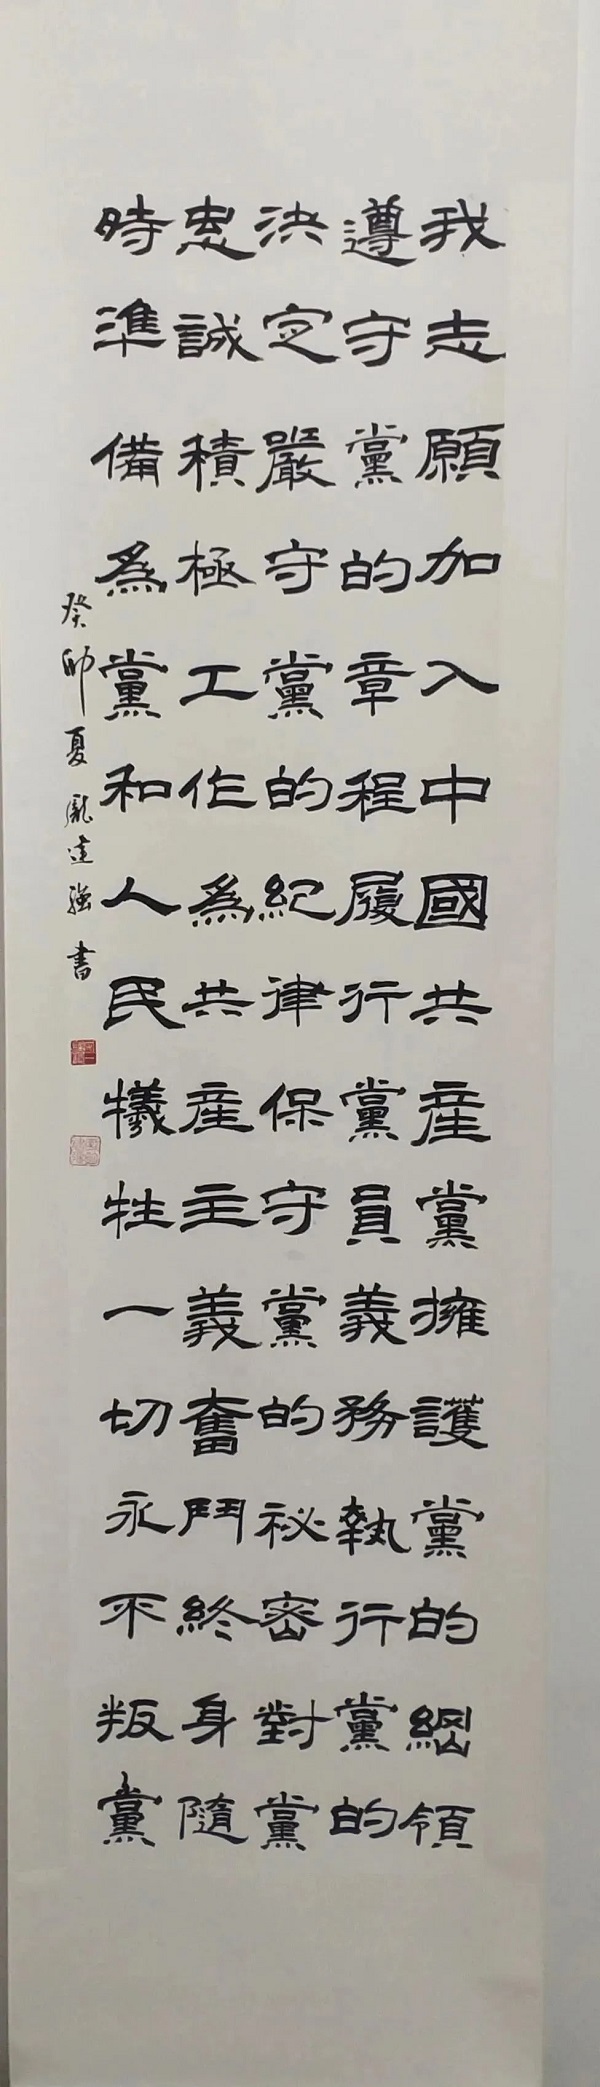 我志願加入中國共產黨擁護黨的綱領
遵守黨的章程履行黨員義務執行黨的
決定嚴守黨的紀律保守黨的祕密對黨
忠誠積極工作為共產主義奮鬥終身隨
時準備為黨和人民犧牲一切永不叛黨
癸卯夏龐達強書